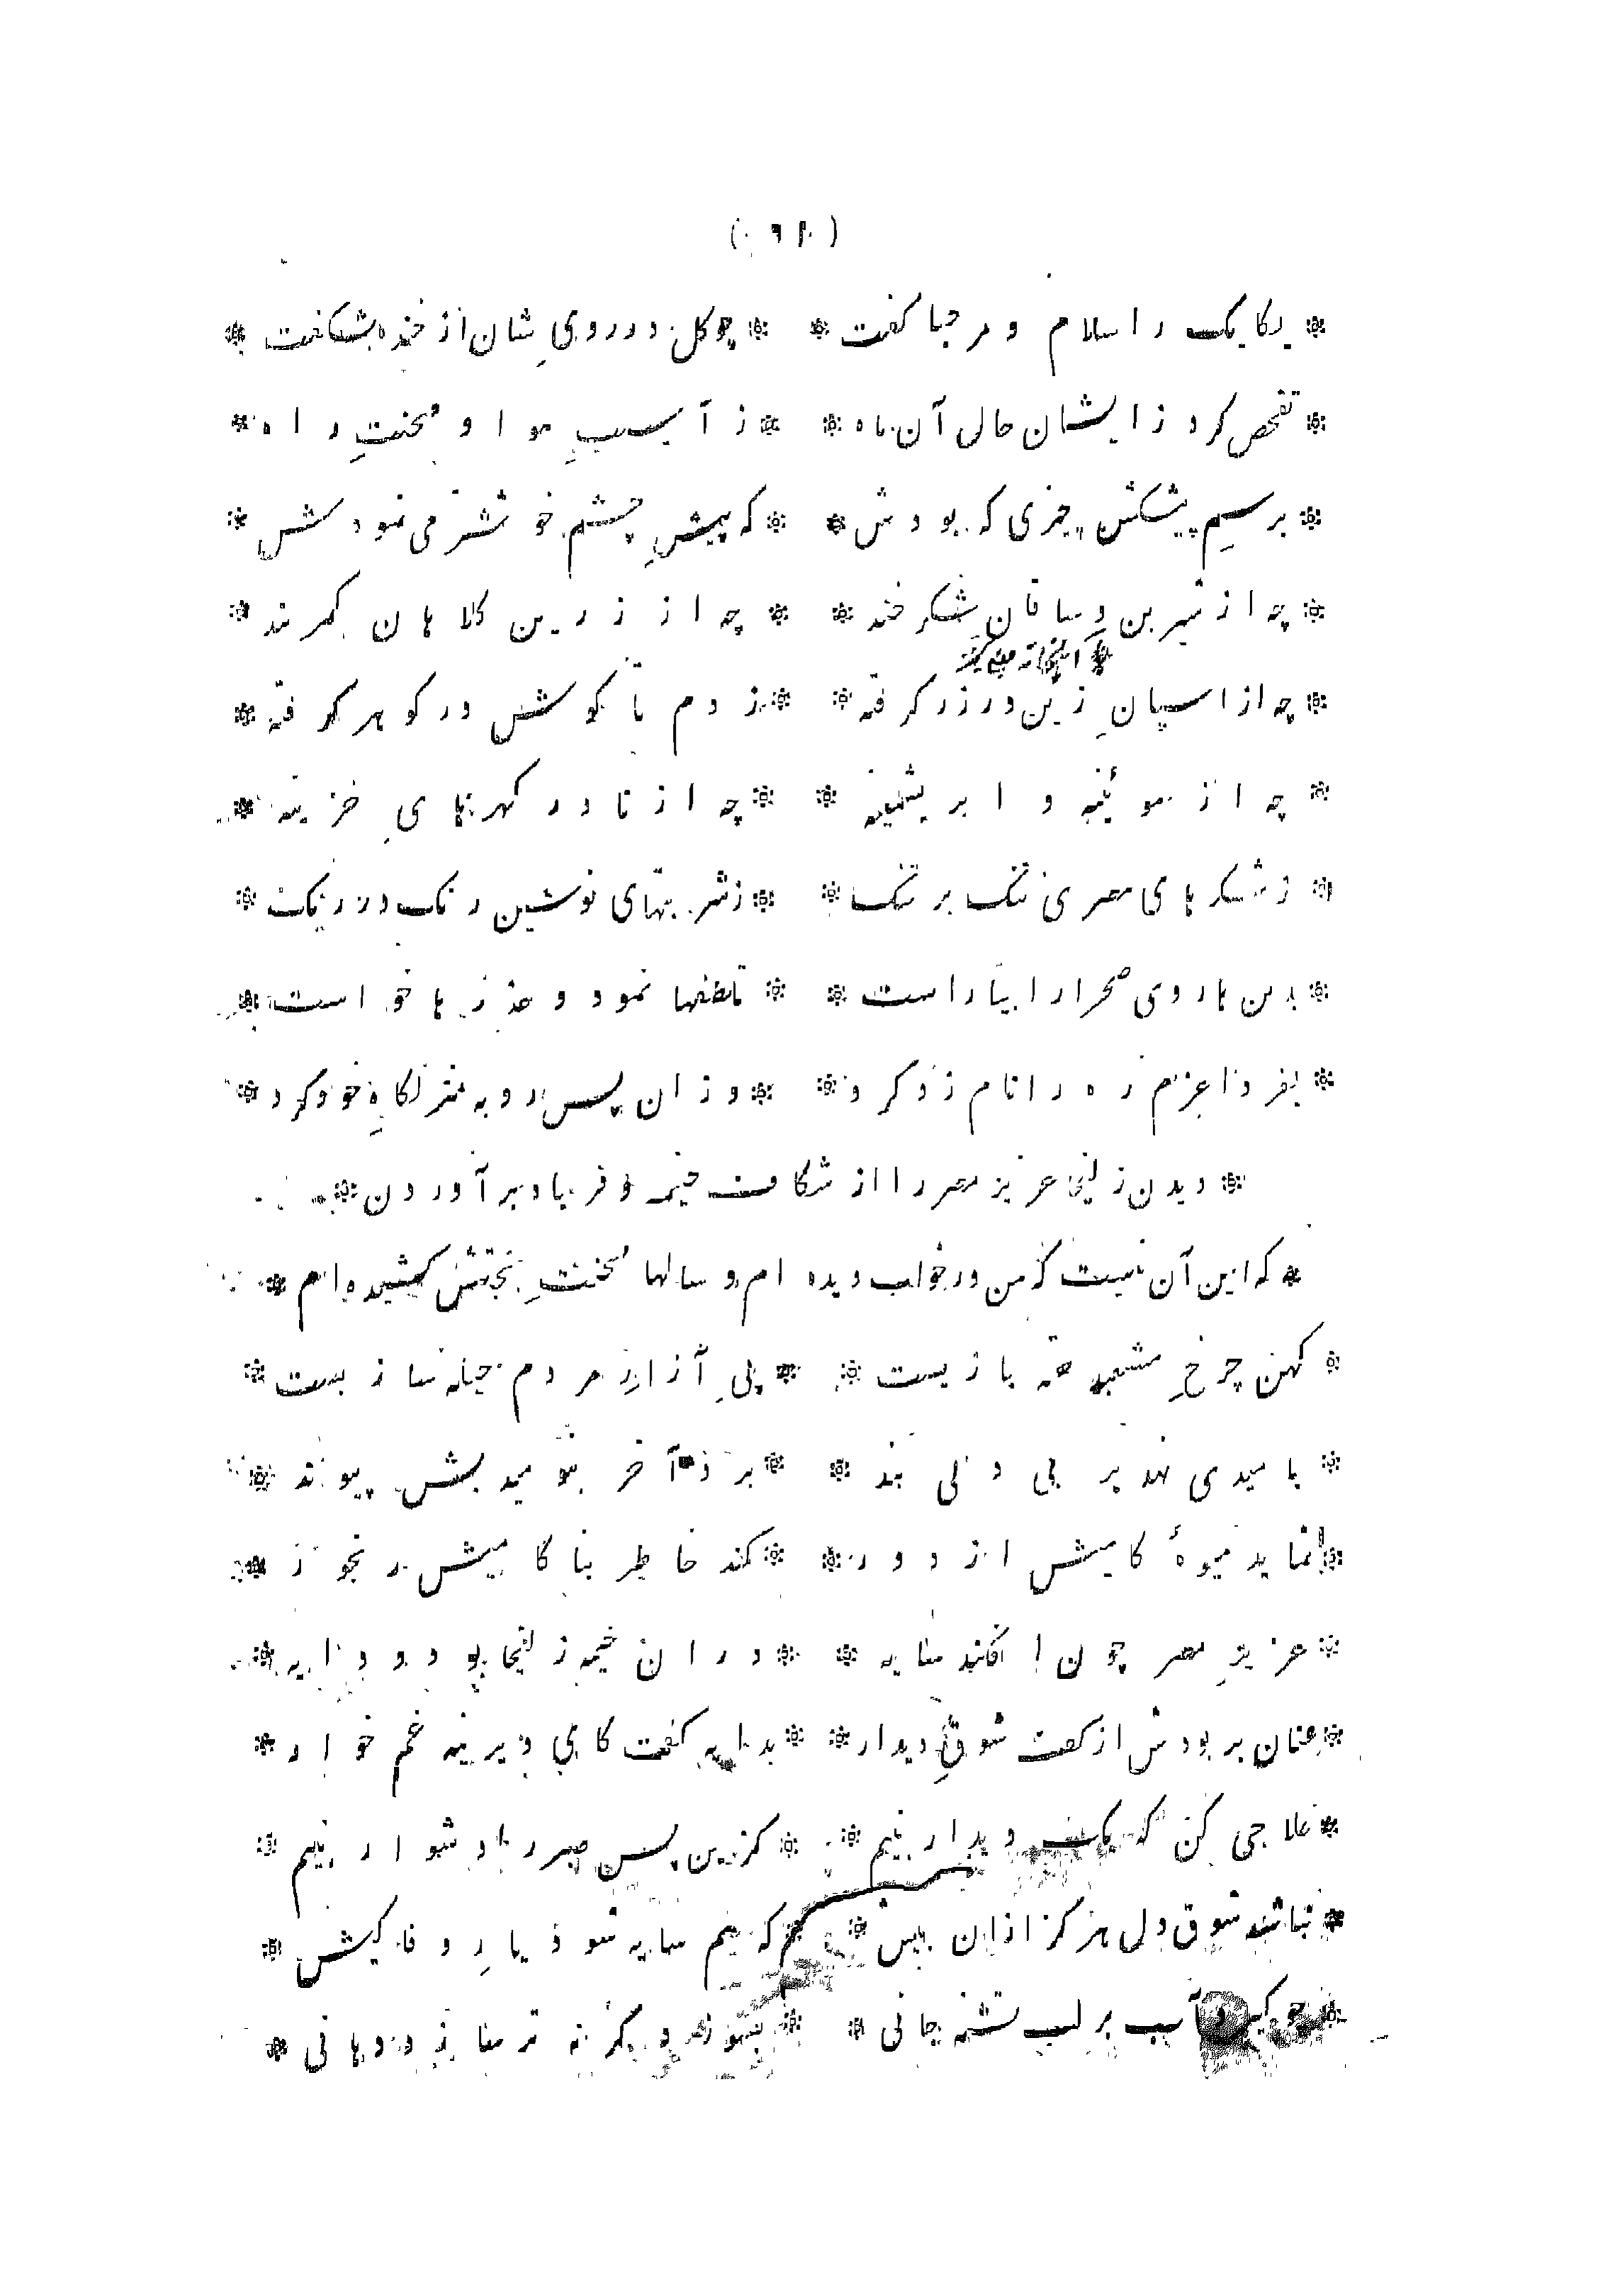 * یکایک را سلام و مرحبا کفت * * چو کل در رویِ شان از خنده بشکفت *
* تفحص کرد ز ایشان حال آن ماه * * ز آسیبِ هوا و محنتِ راه *
* برسمِ پیشکش چیزی که بودش * * که پیشِ چشم خوشتر می نمودش *
* چه از شیرین وساقان شکر خند * * چه از زرین کلاهان کمر بند *
* چه از اسپانِ زین در زر کرفته * * ز دم تا کوش در کوهر کرفته *
* چه از موئینه و ابریشمینه * * چه از نادر کهرهایِ خزینه *
* ز شکرهای مصری تنک بر تنک * * ز شربتهای نوشین رنک در رنک *
* بدین ها روی صحرا را بیاراست * * تلطفها نمود و عذرها خواست *
* بفردا عزم ره را نامزد کرد * * وزان پس رو به منزلکاهِ خود کرد *
* دیدن زلیخا عزیز مصر را از شکاف خیمه و فریاد بر آوردن *
* که این آن نیست که من در خواب دیده ام و سالها محنتِ محبتش کشیده ام *
* کهن چرخِ مشعبد حقه بازیست * * پیِ آزارِ مردم حیله سازیست *
* بامیدی نهد بر بی دلی بند * * برد آخر بنومیدیش پیوند *
* نماید میوهٔ کامیش از دور * * کند خاطر بنا کامیش رنجور *
* عزیزِ مصر چون افکند سایه * * دران خیمه زلیخا بود و دایه *
* عنان بربودش از کف شوقِ دیدار * * بدایه کفت کای دیرینه غم خوار *
* علاجی کن که یک دیدار بینم * * کزین پس صبر را دشوار بینم *
* نباشد شوق دل هرکز ازان بیش * * که همسایه شود یارِ وفا کیش *
* چو کیرد آب بر لب تشنه جانی * * بسوزد کر نه تر سازد دهانی *